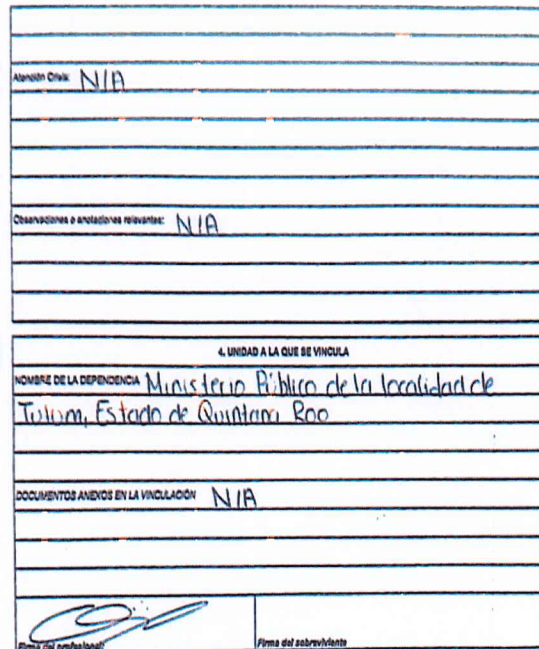 Atención Crisis: N/A
Observaciones o anotaciones relevantes: N/A
4. UNIDAD A LA QUE SE VINCULA
NOMBRE DE LA DEPENDENCIA Ministerio Público de la localidad de
Tulum, Estado de Quintana Roo
DOCUMENTOS ANEXOS EN LA VINCULACIÓN N/A
Firma del profesional: Firma del sobreviviente